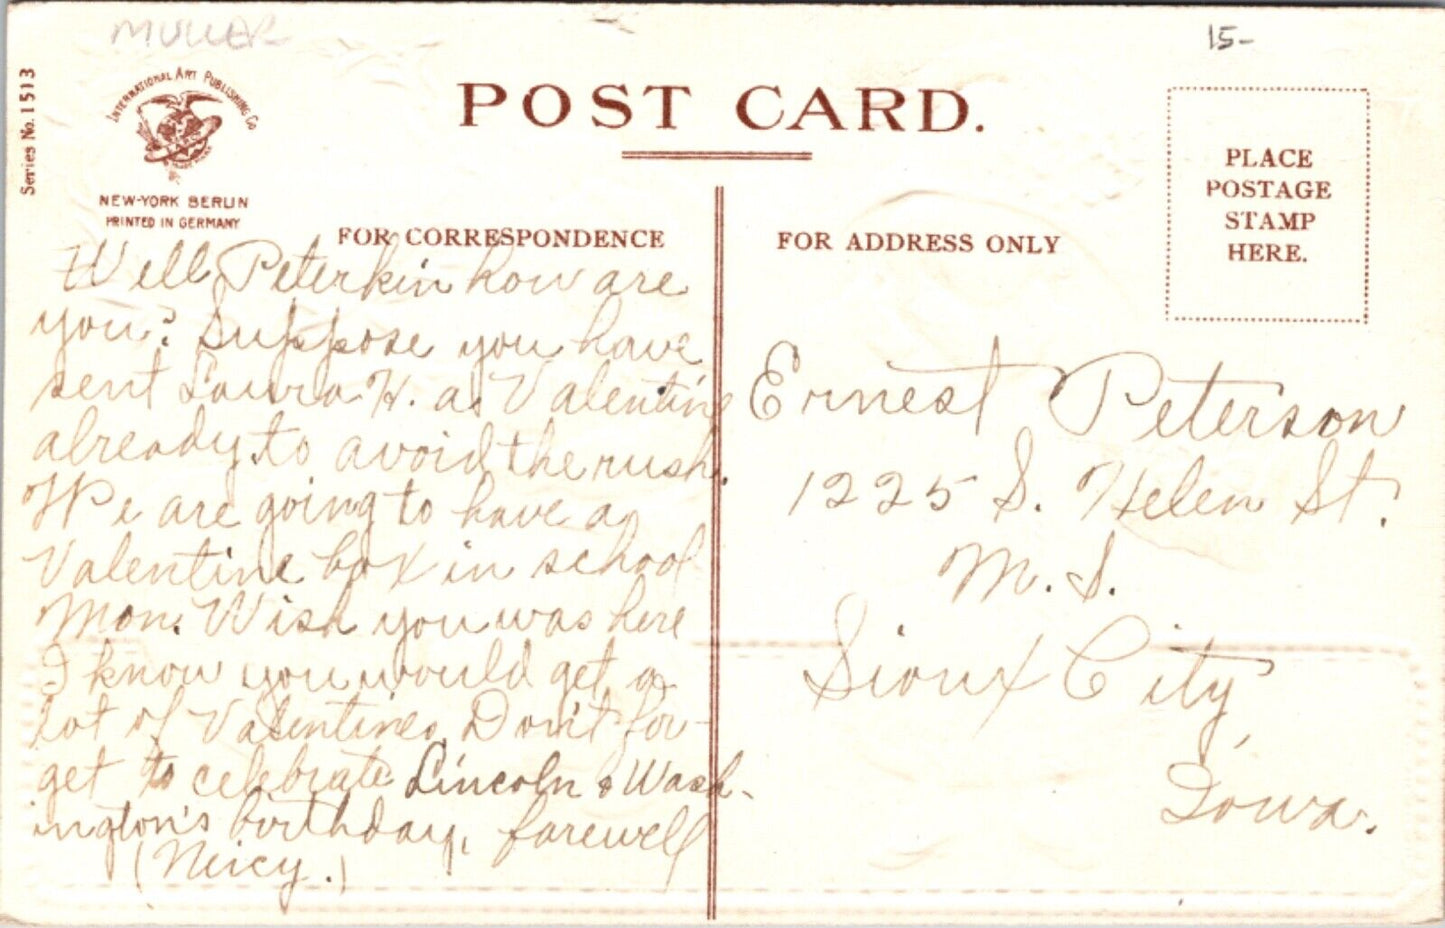 MULLER
15-
Series No. 1513
INTERNATIONAL ART PUBLISHING CO
NEW-YORK BERLIN
PRINTED IN GERMANY
POST CARD.
PLACE
POSTAGE
STAMP
HERE.
FOR CORRESPONDENCE
Well Peterkin how are
you? Suppose you have
sent Laura H. a Valentine
already to avoid the rush.
We are going to have a
Valentine box in school
Mon. Wish you was here
I know you would get a
lot of Valentines. Don't for-
get to celebrate Lincoln & Wash-
ington's birthday, farewell
(Neicy.)
FOR ADDRESS ONLY
Ernest Peterson
1225 S. Helen St.
M. S.
Sioux City,
Iowa.